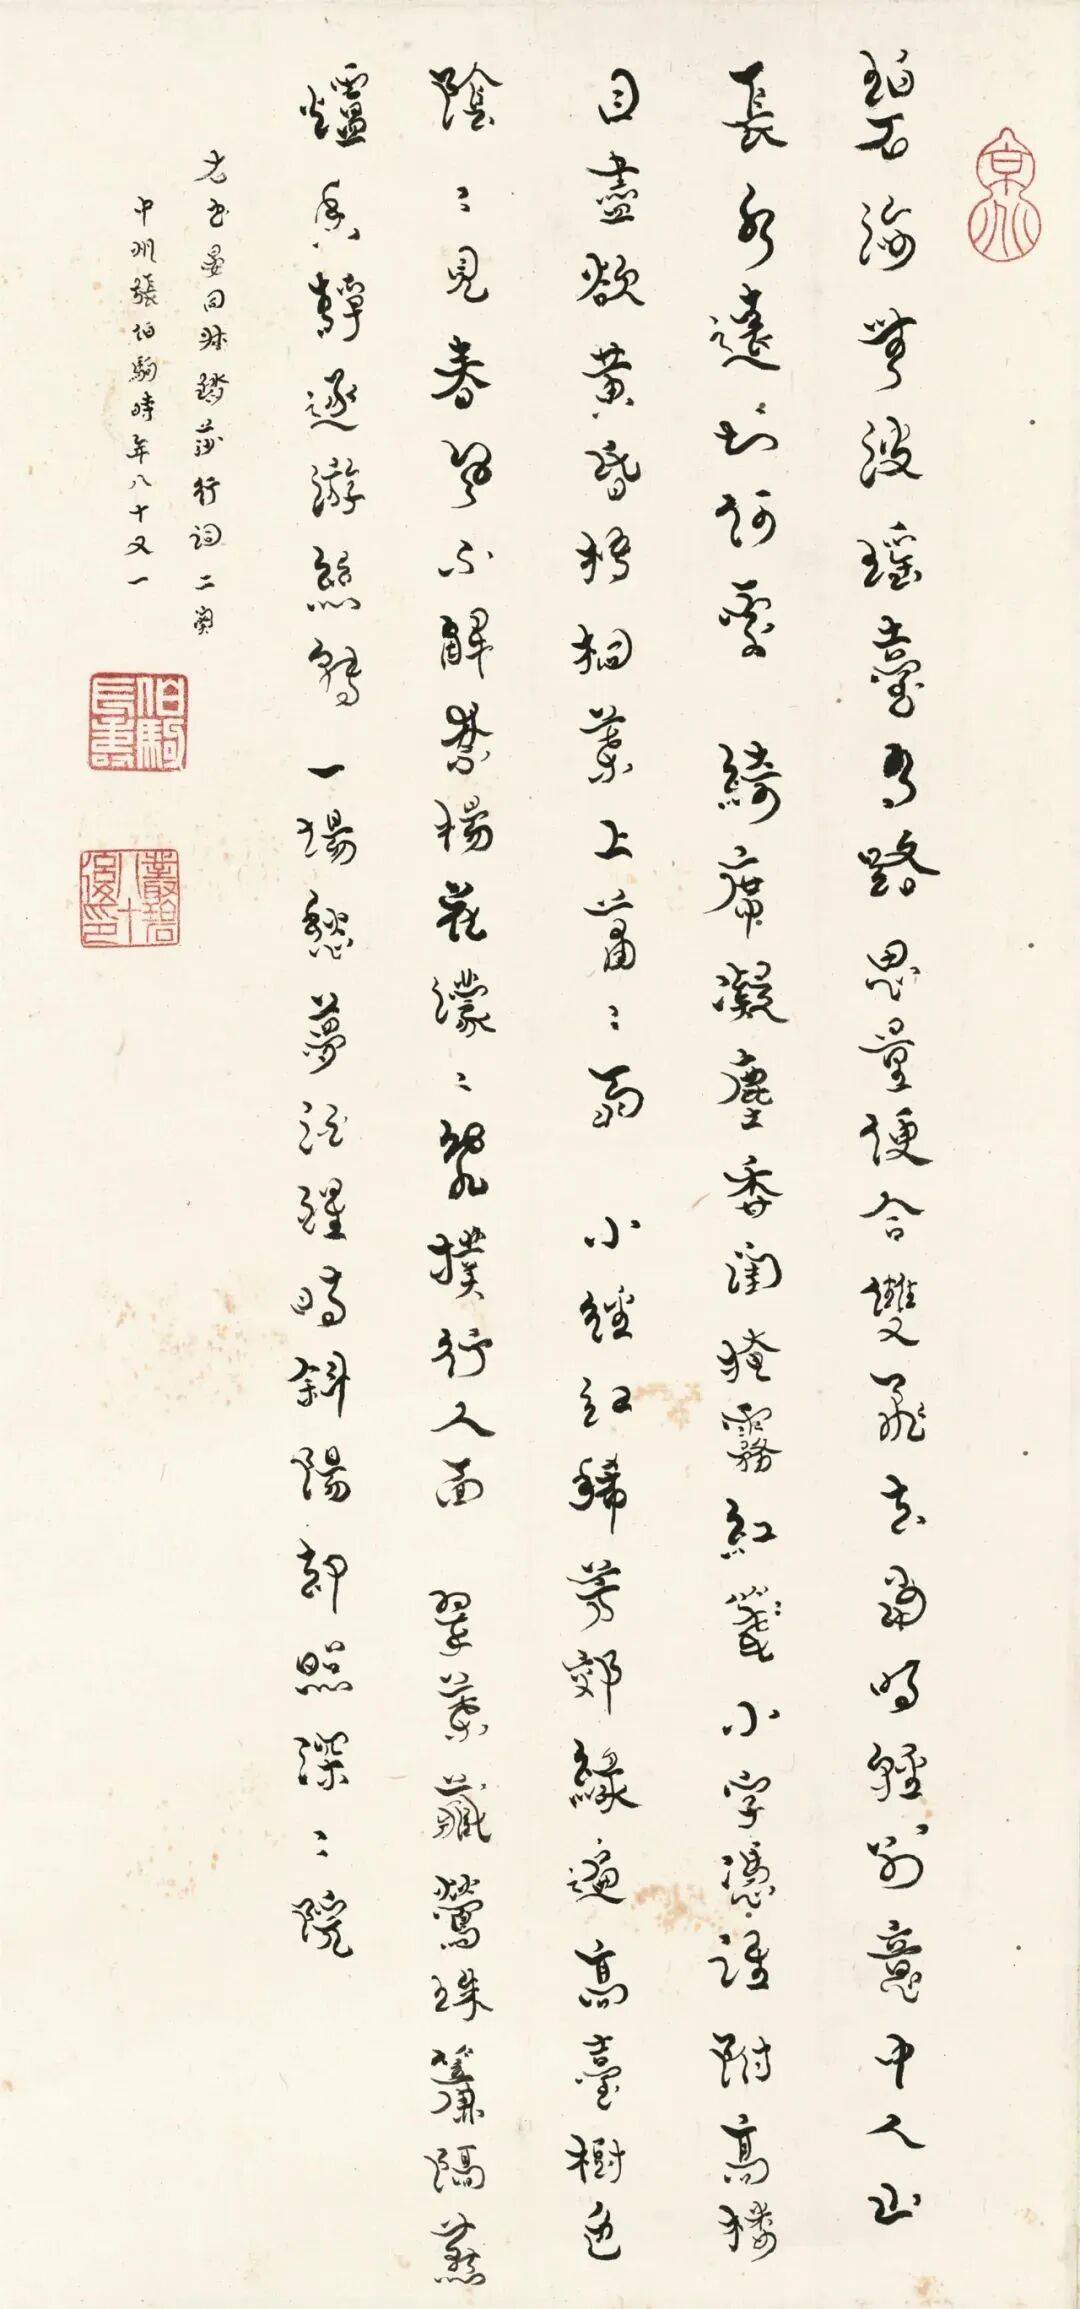 碧海無波瑤臺有路思量便合雙飛去當時輕別意中人山
長水遠知何處 綺席凝塵香閨掩霧紅箋小字憑誰附高樓
目盡欲黃昏梧桐葉上蕭〻雨 小徑紅稀芳郊綠遍高臺樹色
陰〻見春風不解禁楊花濛〻亂撲行人面 翠葉藏鶯珠簾隔燕
爐香靜逐游絲轉 一場愁夢酒醒時斜陽却照深〻院
右書晏同叔踏莎行詞二闋
中州張伯駒時年八十又一
京兆
伯駒長壽
叢碧八十後印